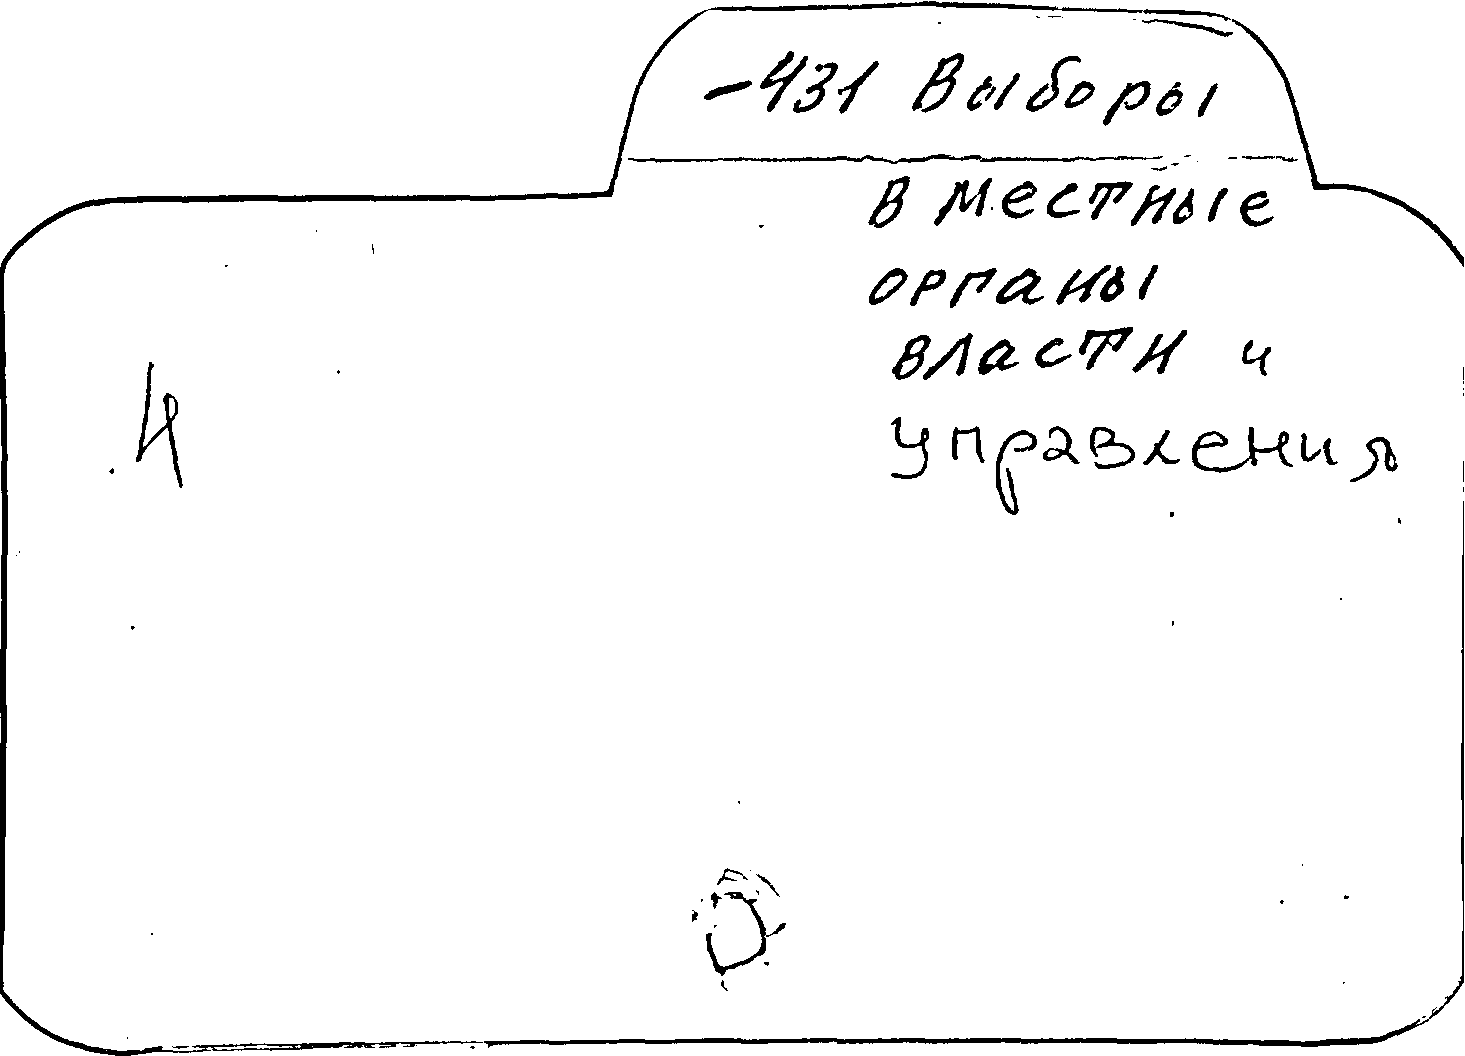 -431 Выборы
в местные
органы
власти и
управления
4